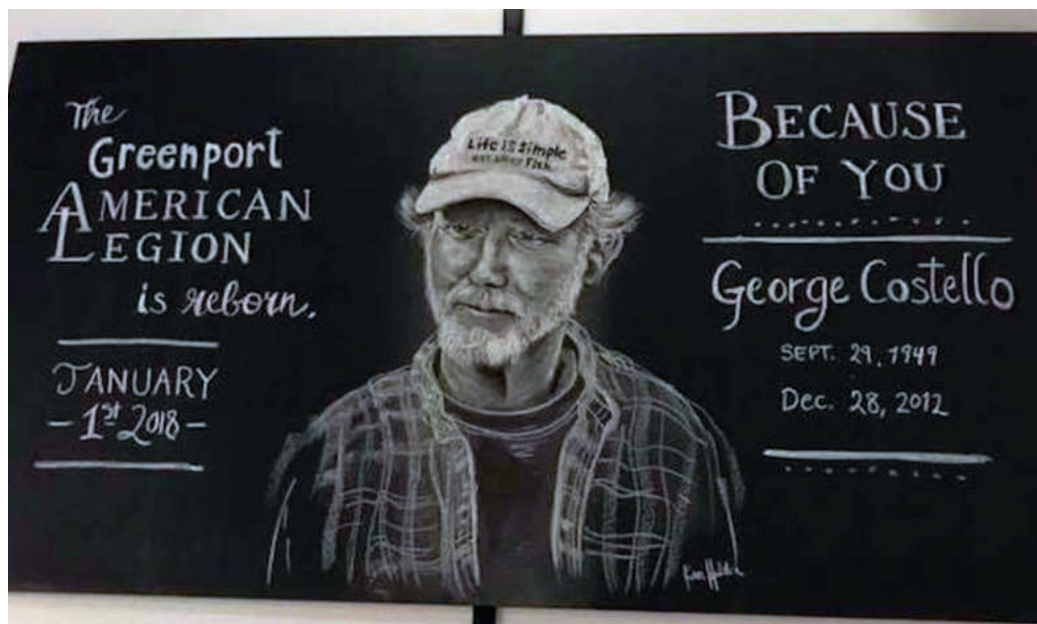 The
Greenport
AMERICAN
LEGION
is reborn.
JANUARY
- 1st 2018 -
Life is simple
eat sleep Fish
BECAUSE
OF YOU
George Costello
SEPT. 29, 1949
Dec. 28, 2012